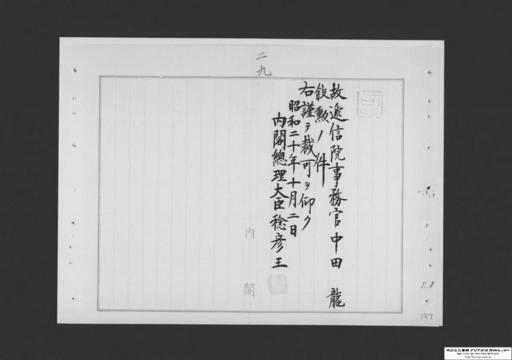 二九
故逓信院事務官中田龍
叙勲ノ件
右謹テ裁可ヲ仰ク
昭和二十年十月二日
内閣總理大臣稔彦王
内閣